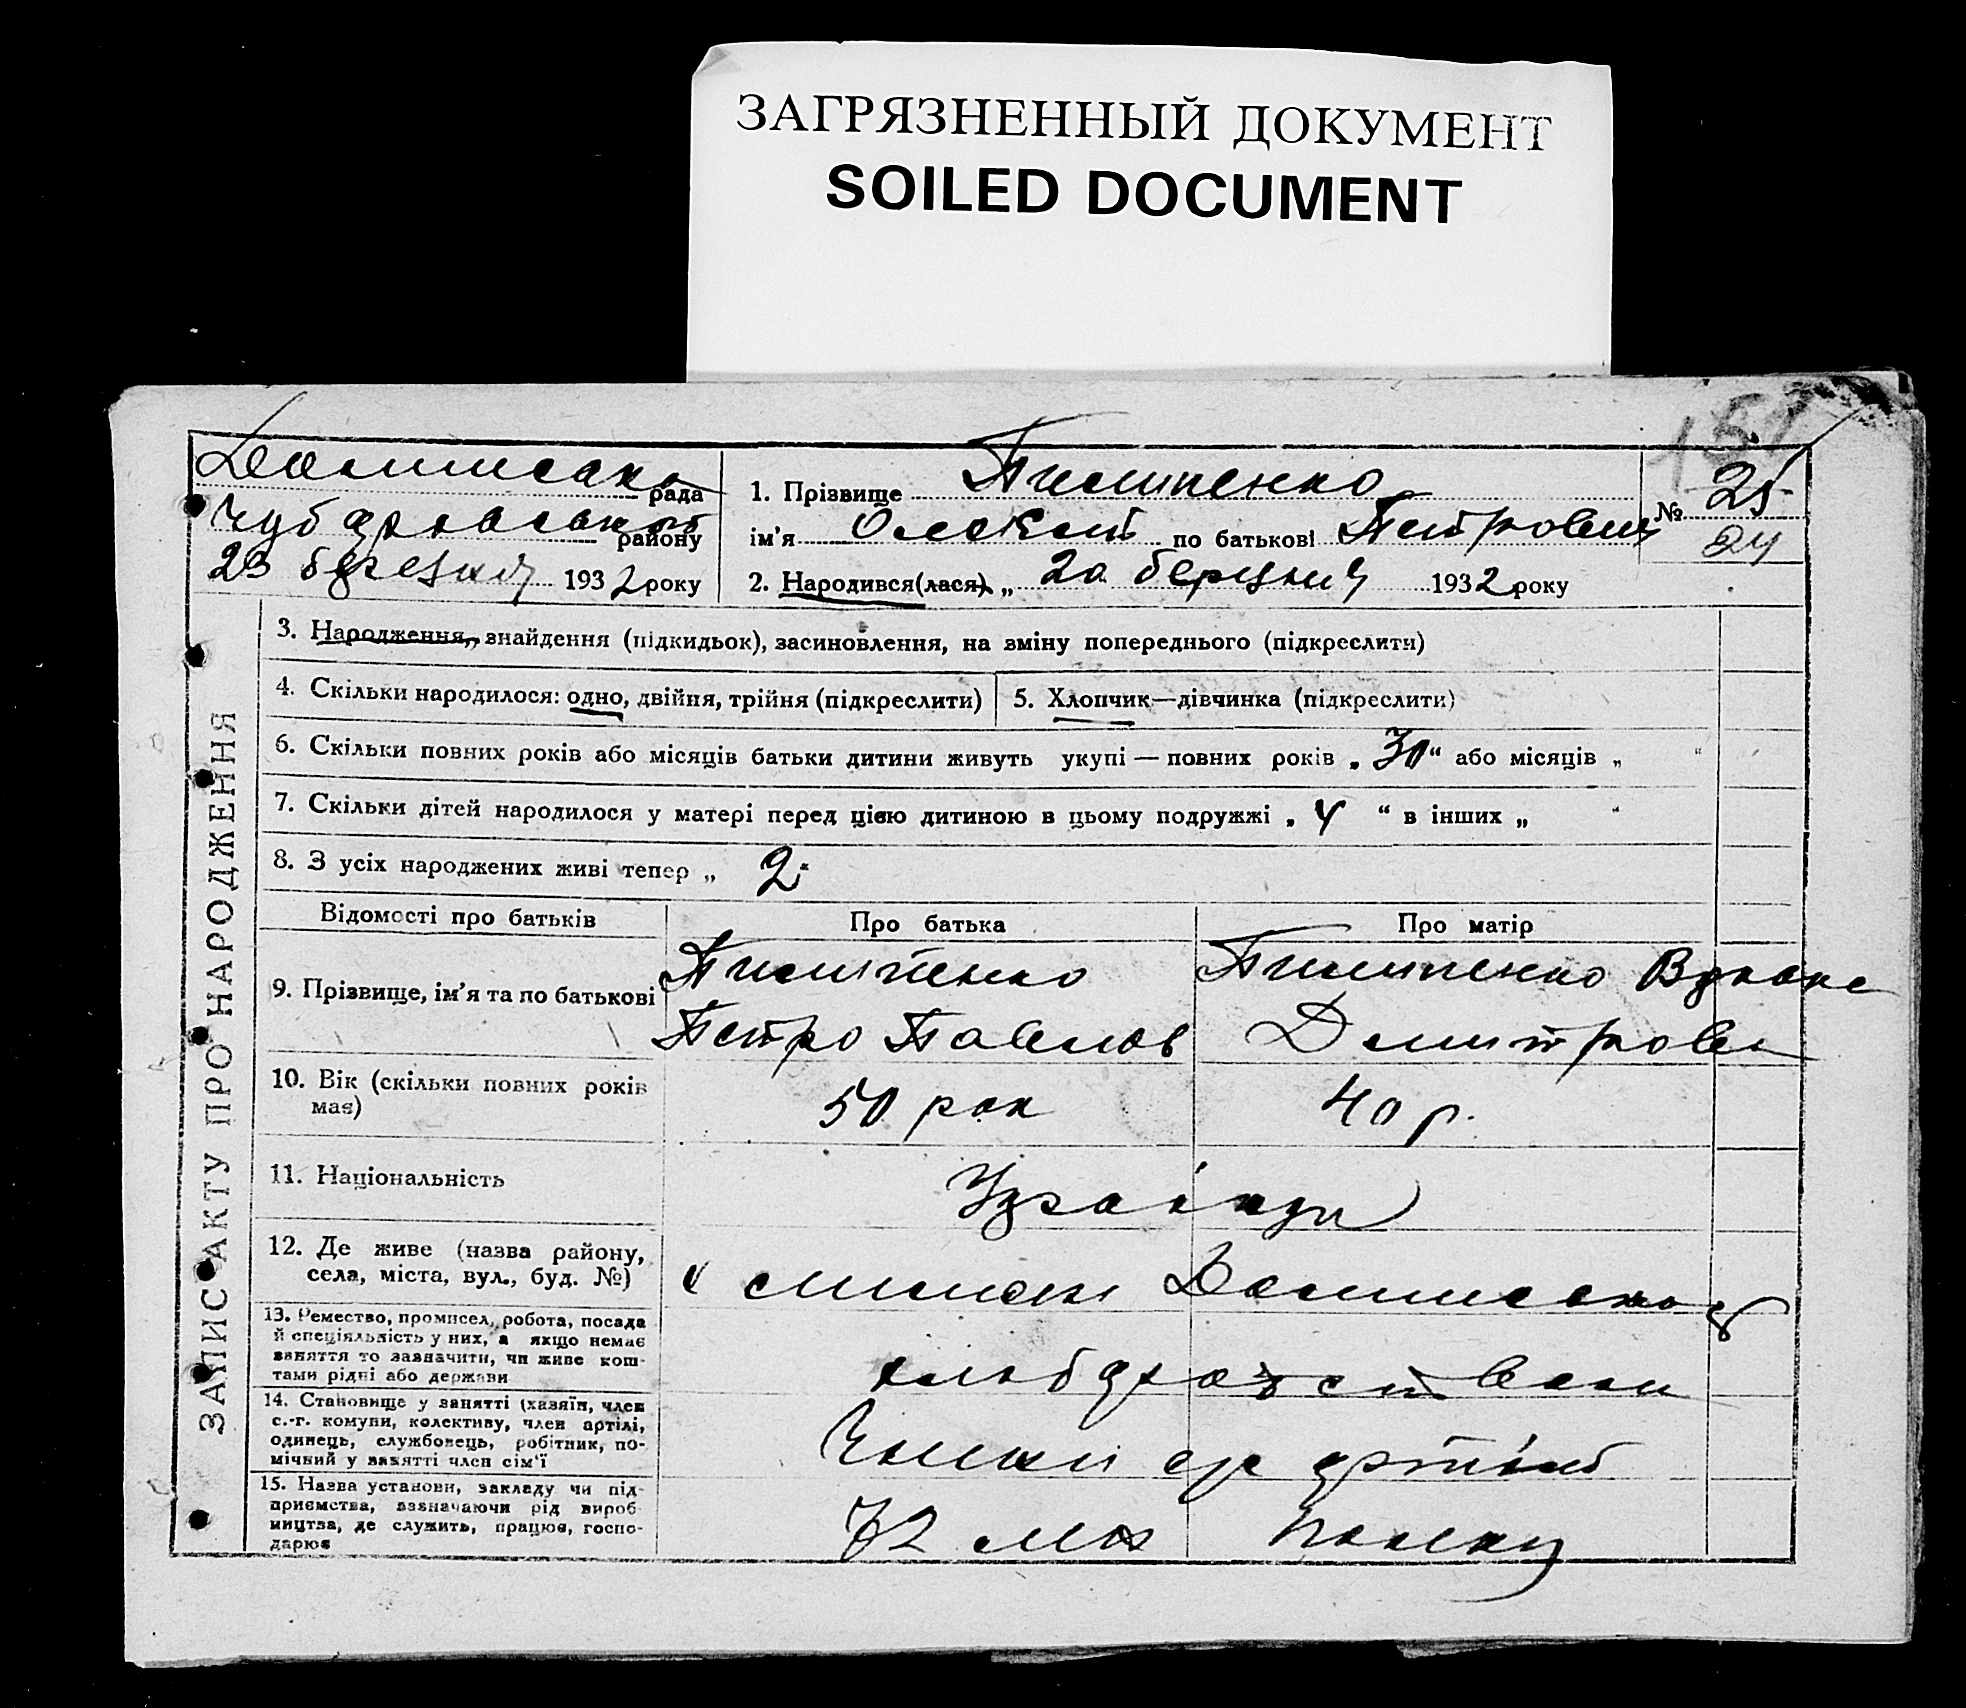 ЗАГРЯЗНЕННЫЙ ДОКУМЕНТ
SOILED DOCUMENT
151
рада
району
23 березня 1932 року
1. Прізвище Пилипенко
ім'я Олексій по батькові Петрович
№ 25
24
2. Народився(лася) „ 20 березня 1932 року
ЗАПИС АКТУ ПРО НАРОДЖЕННЯ
3. Народження, знайдення (підкидьок), засиновлення, на зміну попереднього (підкреслити)
4. Скільки народилося: одно, двійня, трійня (підкреслити)
5. Хлопчик—дівчинка (підкреслити)
6. Скільки повних років або місяців батьки дитини живуть укупі — повних років „ 30 “ або місяців „ “
7. Скільки дітей народилося у матері перед цією дитиною в цьому подружжі „ 4 “ в інших „ “
8. З усіх народжених живі тепер „ 2
Відомості про батьків
Про батька
Про матір
9. Прізвище, ім'я та по батькові
Пилипенко
Петро Павлов
Пилипенко
Дмитров
10. Вік (скільки повних років
має)
50 рок
40 р.
11. Національність
12. Де живе (назва району,
села, міста, вул., буд. №)
13. Ремество, промисел, робота, посада
й спеціяльність у них, а якщо немає
заняття то зазначити, чи живе кош-
тами рідні або держави
14. Становище у занятті (хазяїн, член
с.-г. комуни, колективу, член артілі,
одинець, службовець, робітник, по-
мічний у занятті член сім'ї
15. Назва установи, закладу чи під-
приємства, зазначаючи рід вироб-
ництва, де служить, працює, госпо-
дарює